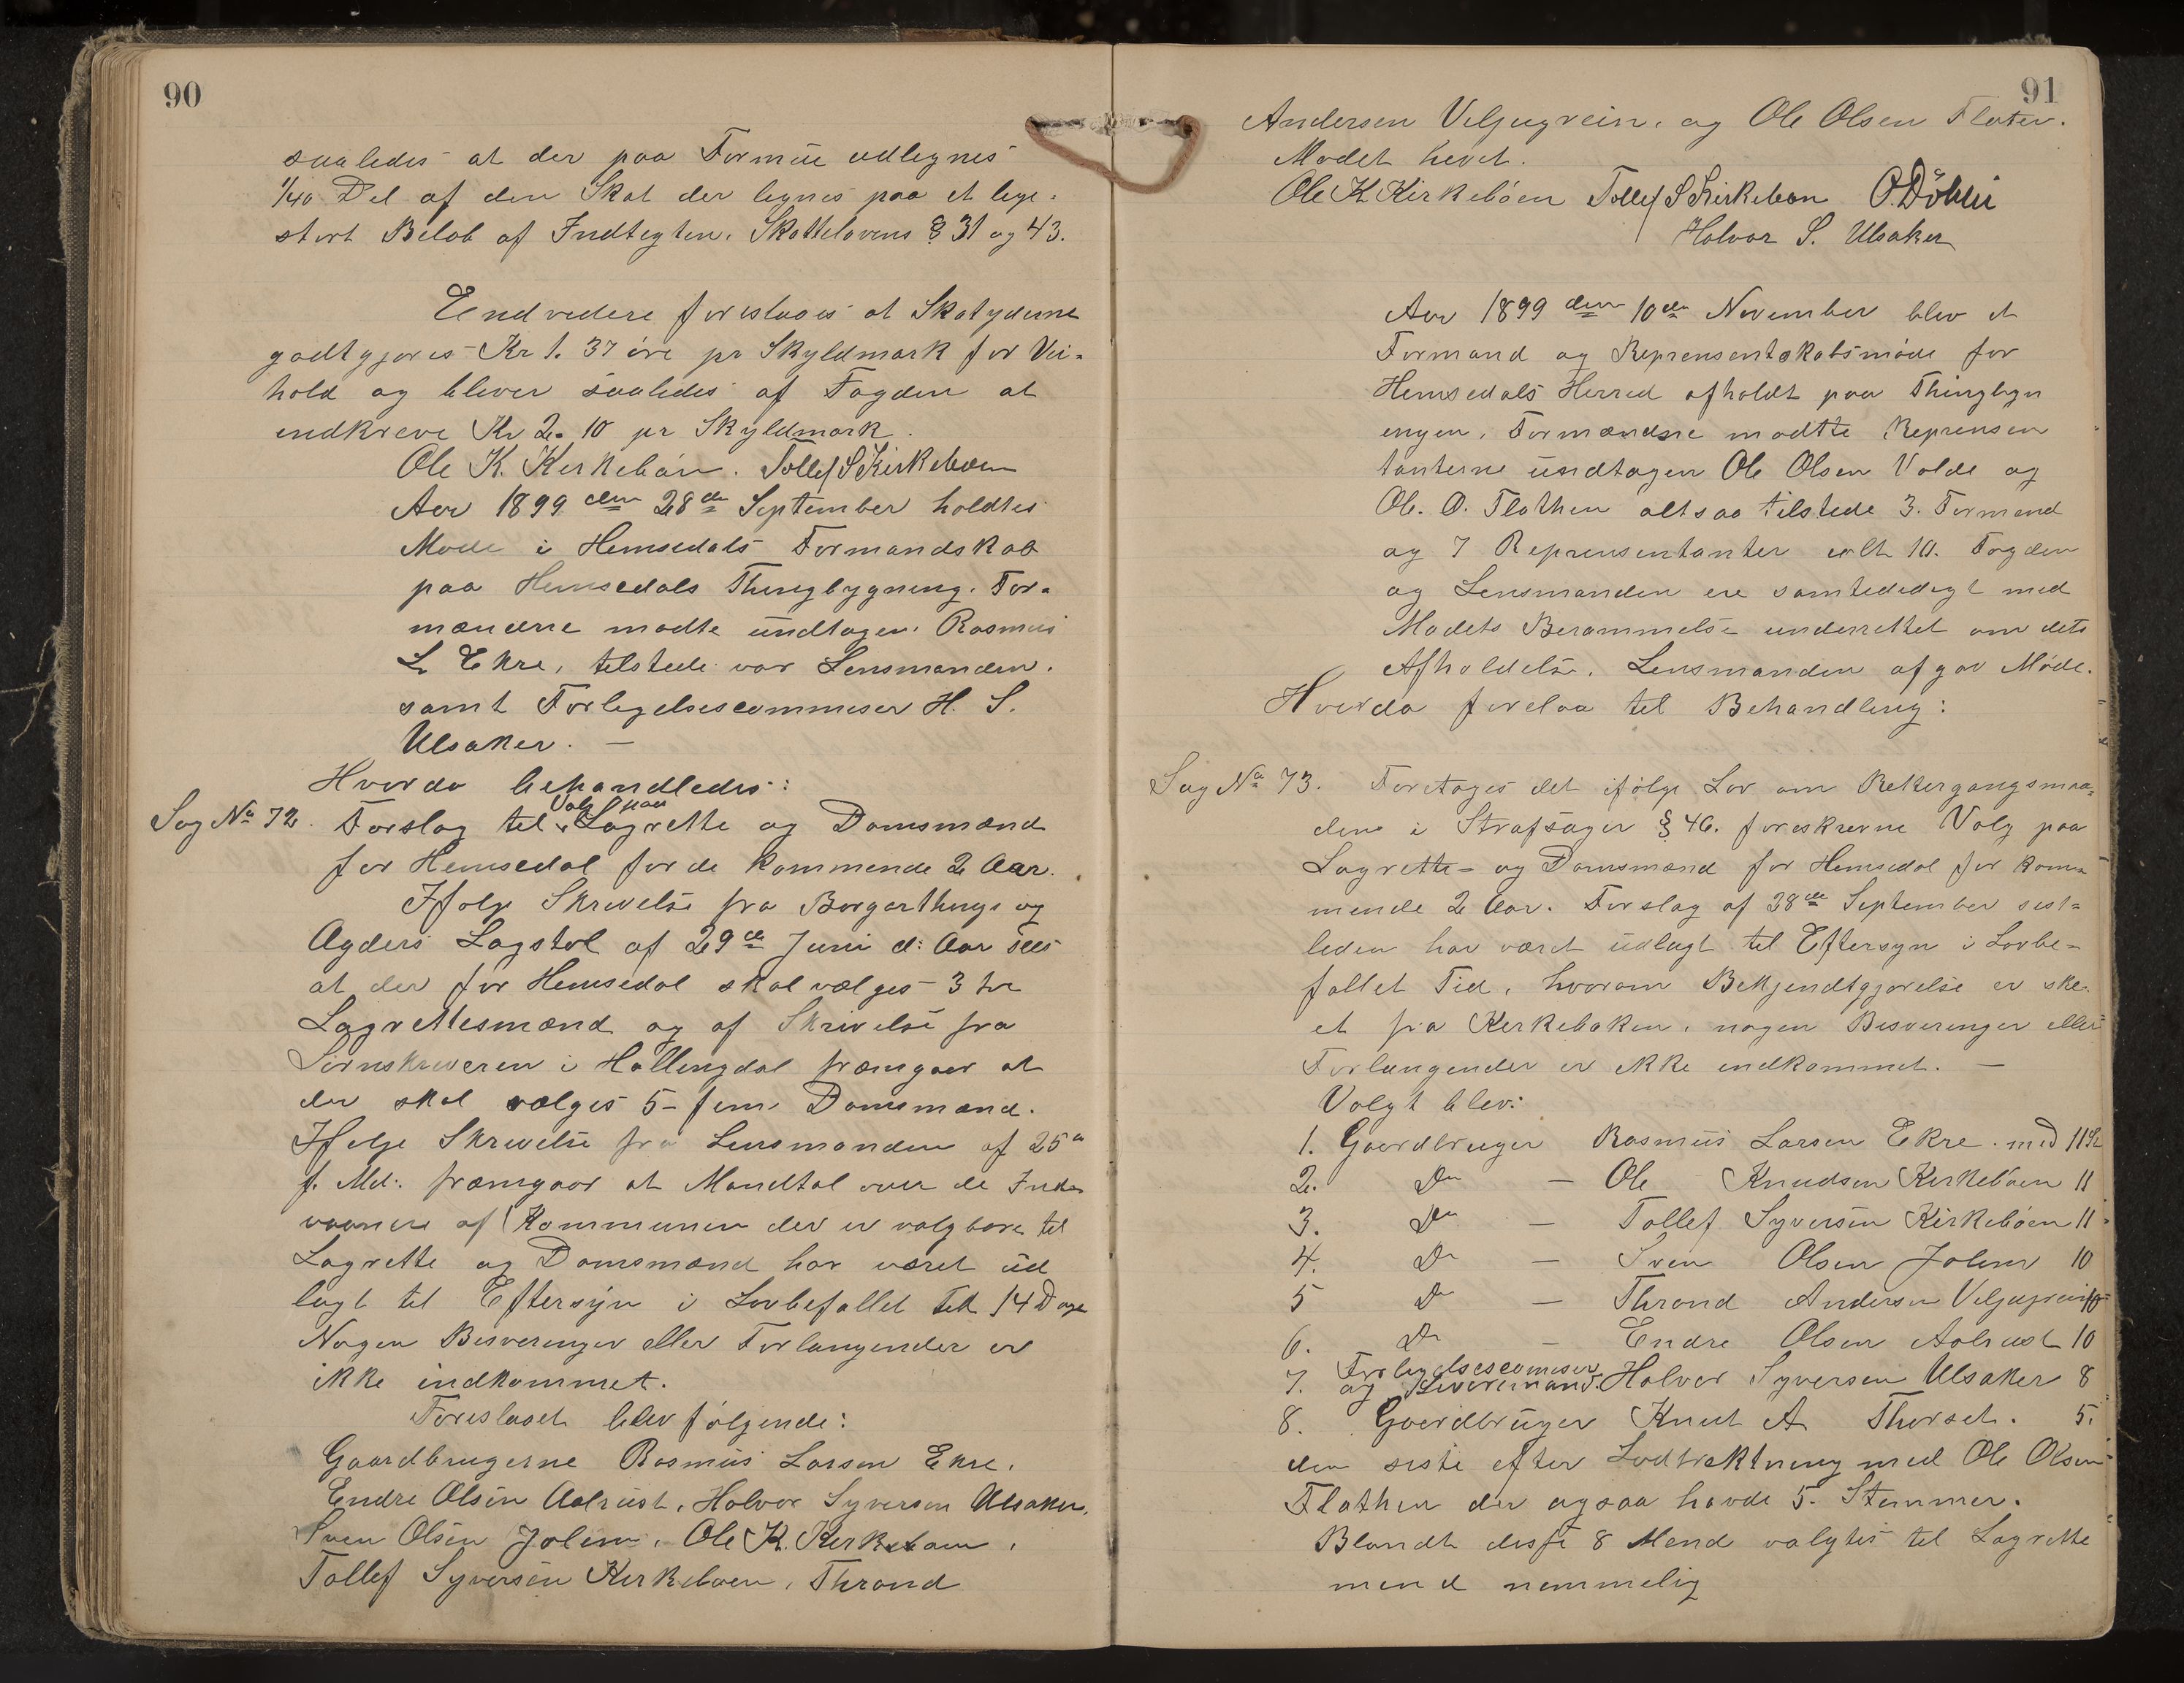 90
saaledes at der paa Formue udlegnes
1/40 Del af den Skat der legnes paa et lige-
stort Beløb af Indtegten. Skattelovens § 31 og 43.
Endvedere foreslaaes at Skatyderne
godtgjøres Kr 1. 37 øre pr Skyldmark for Vei-
hold og blever saaledes af Fogden at
endkreve Kr 2. 10 pr Skyldmark.
Ole K. Kerkebøen. Tollef S Kirkeboen
Aar 1899 den 28de September holdtes
Møde i Hemsedals Formandskab
paa Hemsedals Thingbygning. For-
mændene mødte undtagen Rasmus
L Ekre, telstede var Lensmanden.
samt Forlegelsescommeser H. S.
Ulsaker. —
Hvorda behandledes:
Sag No 72. Forslag tel Valg paa Lagrette og Domsmænd
for Hemsedal for de kommende 2 Aar.
Ifølge Skrevelse fra Borgarthings og
Agders Lagstol af 29de Juni d: Aar sees
at der for Hemsedal skal vælges 3 tre
Lagrettesmænd og af Skrivelse fra
Sornskreveren i Hallengdal fræmgaar at
der skal vælges 5 - fem Domsmænd.
Ifølge Skrevelse fra Lensmanden af 25de
f. Md. fræmgaar at Mandtal over de Inde
vaanere af Kommunen der er valgbare til
Lagrette og Domsmænd har været ud
lagt tel Eftersyn i Lovbefallet Tid 14 Dage
Nogen Besverenger eller Forlangender er
ikke indkommet.
Foreslaaet blev følgende:
Gaardbrugerne Rasmus Larsen Ekre.
Endre Olsen Aalrust, Halvor Syversen Ulsaker.
Sven Olsen Jolem, Ole K. Kerkeboen,
Tollef Syversen Kerkeboen, Thrond
91
Andersen Veljugrein, og Ole Olsen Flaten.
Mødet hevet.
Ole K Kirkebøen Tollef S Kirkeboen O. Döhli
Halvor S. Ulsaker
Aar 1899 den 10de November blev et
Formand og Reprensentskabsmøde for
Hemsedals Herred afholdt paa Thingbyn
engen. Formændne mødtte Reprensen
tanterne undtagen Ole Olsen Volde og
Ole. O. Flathen altsaa tilstede 3. Formænd
og 7 Reprensentanter ialt 10. Fogden
og Lensmanden ere samtededigt med
Mødets Berammelse underrettet om dets
Afholdelse. Lensmanden afgav Møde.
Hvorda forelaa til Behandleng:
Sag No 73. Foretages det ifølge Lov om Rettergangsmaa-
den i Strafsager § 46. foreskrevne Valg paa
Lagrette- og Domsmænd for Hemsedal for kom-
mende 2 Aar. Forslag af 28de September sist-
leden har været udlagt til Eftersyn i Lovbe-
fallet Tid, hvorom Bekjendtgjørelse er ske-
et fra Kerkebaken, nogen Besverenger eller
Forlangender er ikke endkommet. —
Valgt blev:
1. Gaardbruger Rasmus Larsen Ekre. med 11 St
2. Do — Ole Knudsen Kerkebøen 11
3. Do — Tollef Syversen Kirkebøen 11
4. Do — Sven Olsen Jolem 10
5 Do — Thrond Andersen Veljugrein 10
6. Do — Endre Olsen Aalrust 10
7. Forlegelsescomeser og Levermand. Halvor Syversen Ulsaker 8
8. Gaardbruger Knut A Thorset. 5.
den seste efter Lodtrektneng med Ole Olsen
Flathen der ogsaa havde 5. Stemmer.
Blandt desse 8 Mend valgtes tel Lagrette
mend nemmelig